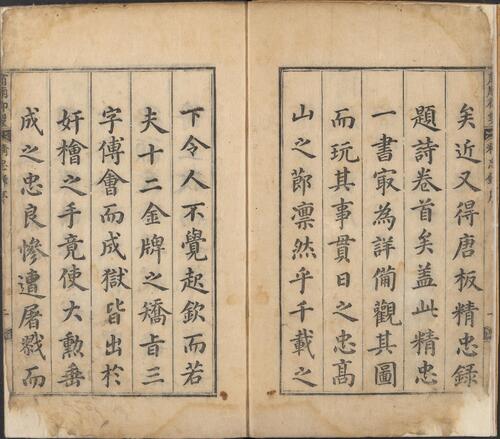 矣近又得唐板精忠録
題詩卷首矣盖此精忠
一書㝡為詳備觀其圖
而玩其事貫日之忠高
山之節凛然乎千載之
下令人不覺起欽而若
夫十二金牌之矯旨三
字傅會而成獄皆出於
奸檜之手竟使大勲垂
成之忠良慘遭屠戮而